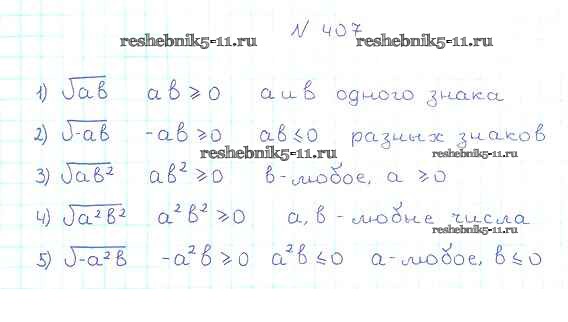 N 407
reshebnik5-11.ru reshebnik5-11.ru
1) √ав ав ⩾ 0 а и в одного знака
2) √-ав -ав ⩾ 0 ав ⩽ 0 разных знаков
reshebnik5-11.ru reshebnik5-11.ru
3) √ав² ав² ⩾ 0 в - любое, а ⩾ 0
4) √а²в² а²в² ⩾ 0 а, в - любые числа
reshebnik5-11.ru
5) √-а²в -а²в ⩾ 0 а²в ⩽ 0 а - любое, в ⩽ 0